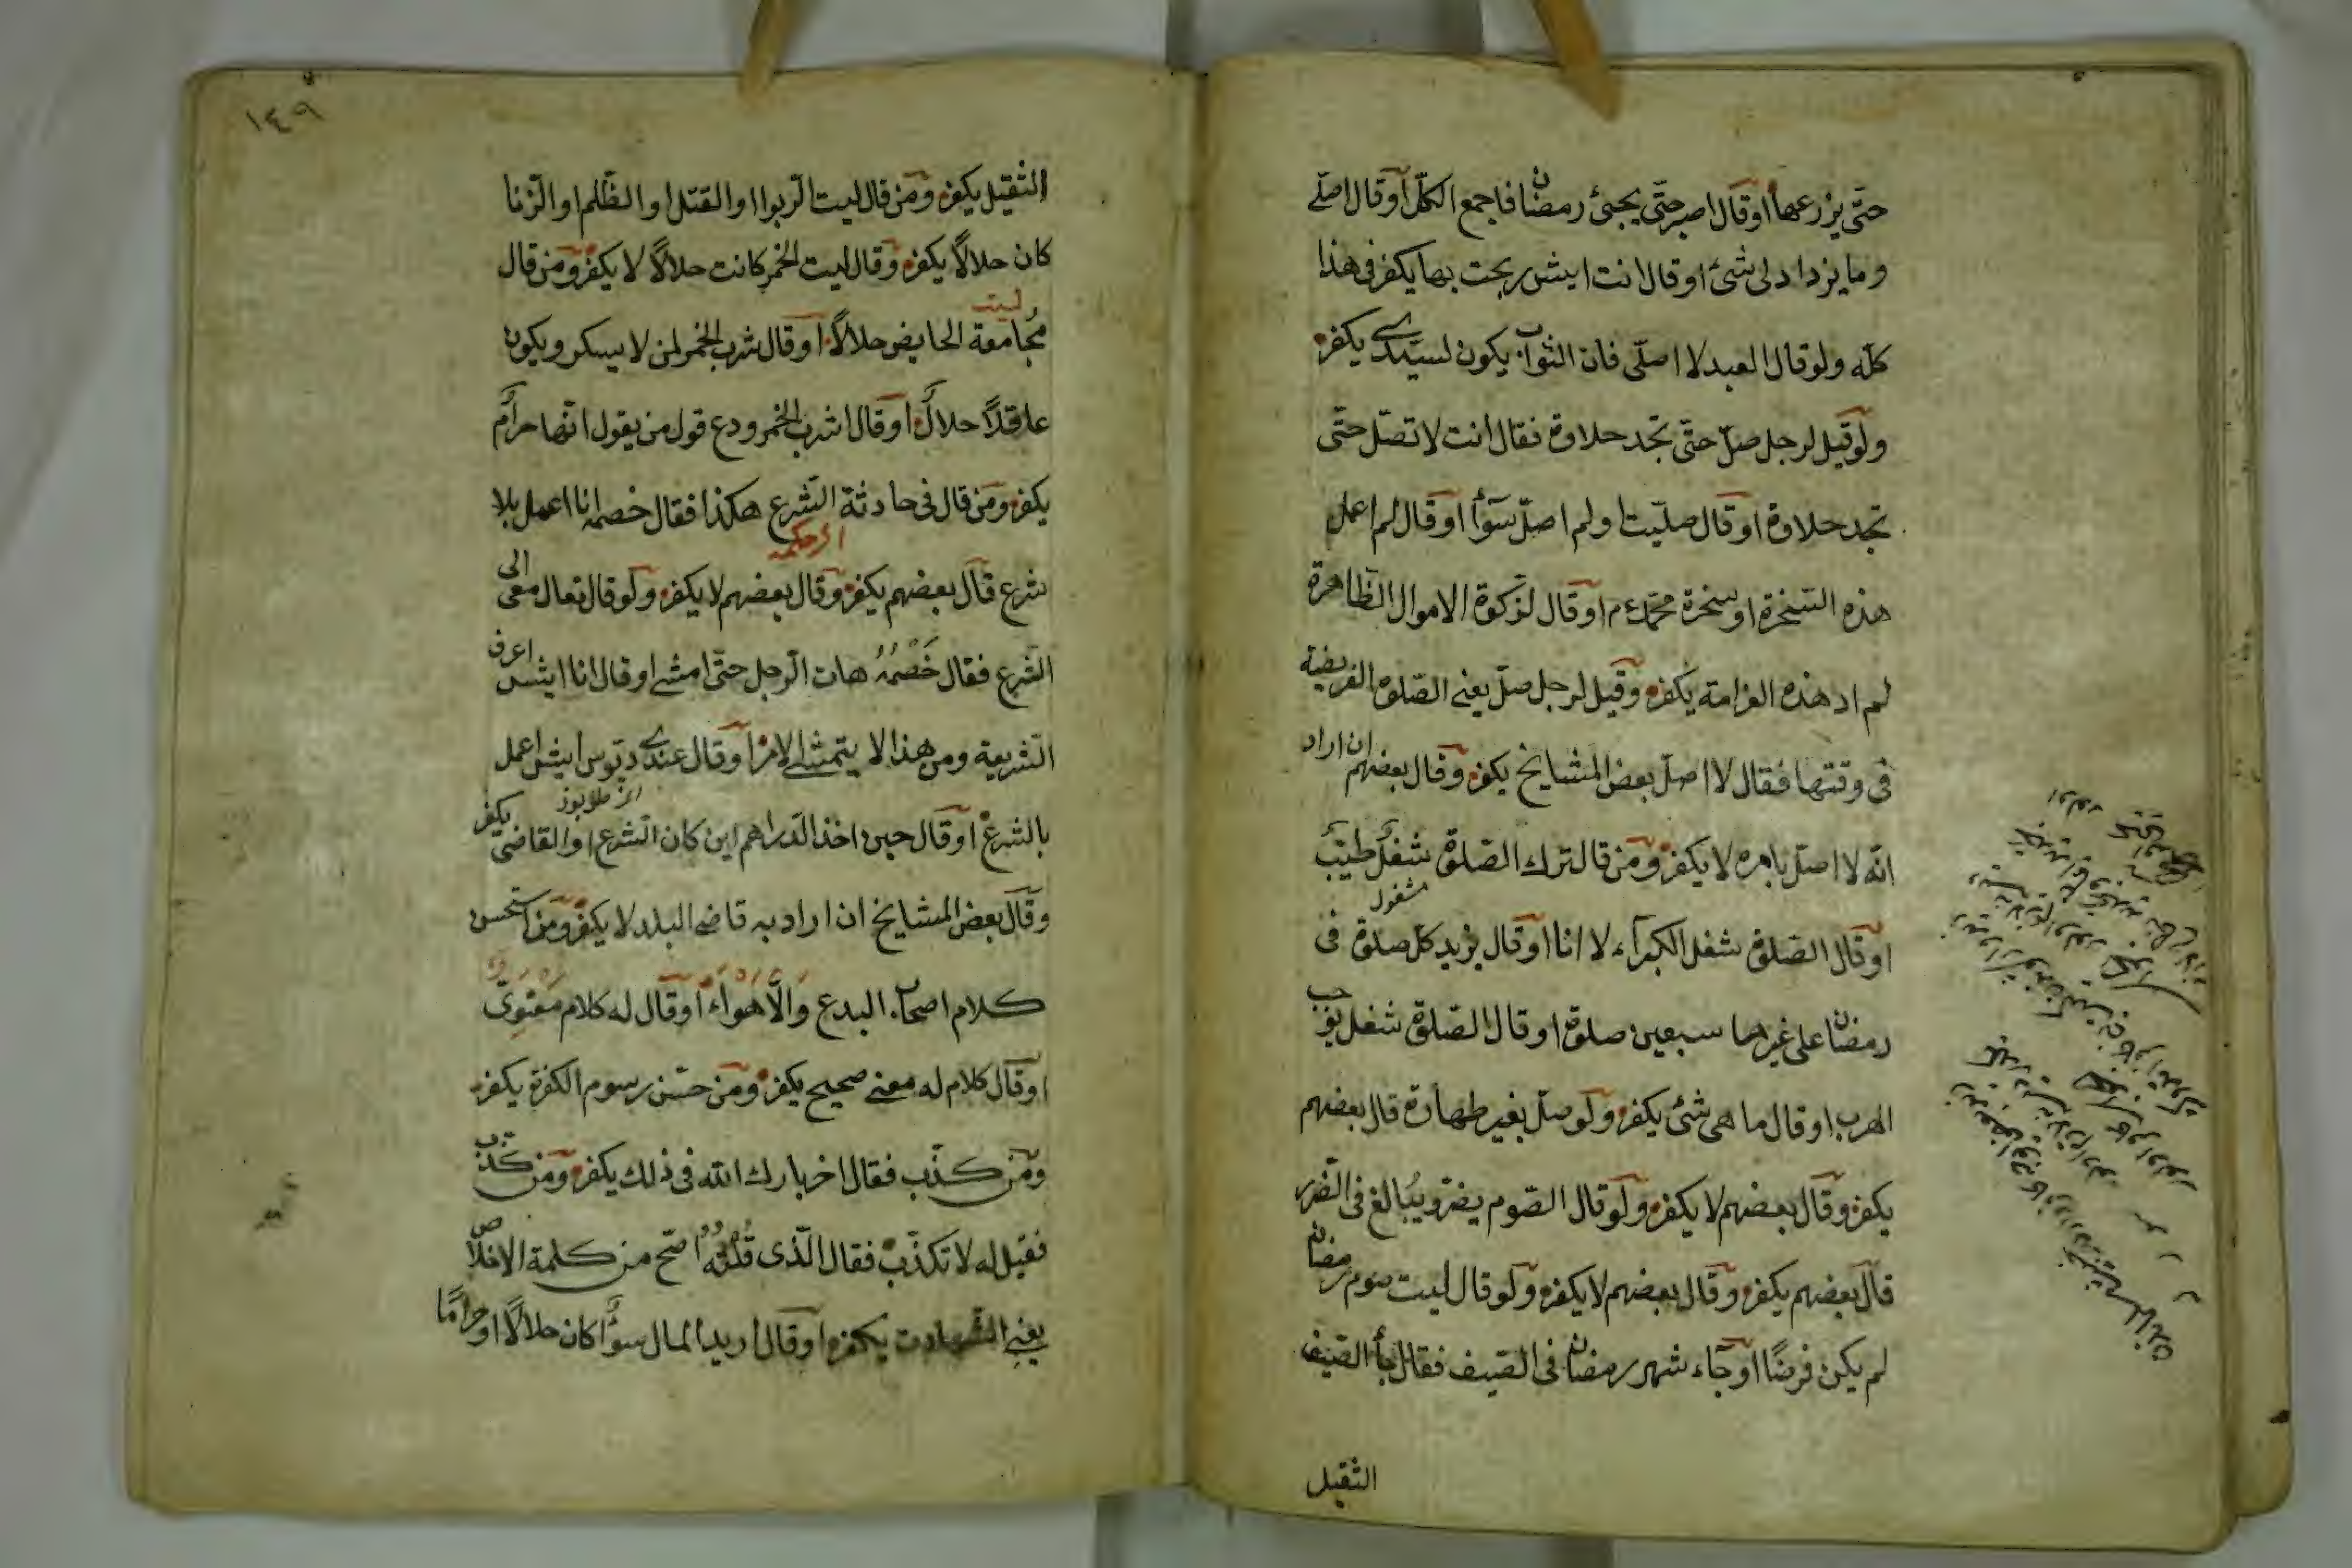 حتّى يزرعها اوقال اصبر حتّى يجئ رمضان فاجمع الكلّ اوقال اصلّى
وما يزداد لى شئ اوقال انت ايش ربحت بها يكفر فى هذا
كلّه ولو قال العبد لا اصلّى فان الثواب يكون لسيّدى يكفر
ولو قيل لرجل صلّ حتّى تجد حلاوة فقال انت لا تصلّ حتّى
تجد حلاوة اوقال صلّيت اولم اصلّ سوأ اوقال لم اعمل
هذه السّخرة او سخرة محمّد ع م اوقال لزكوة الاموال الظّاهرة
لم اد هذه الغرامة يكفر وقيل لرجل صلّ يعنى الصّلوة الفريضة
فى وقتها فقال لا اصلّ بعض المشايخ يكفر وقال بعضهم ان اراد
انّه لا اصلّ بامره لا يكفر ومن قال ترك الصّلوة شغل طيّب
مشغول
اوقال الصّلوة شغل الكبرآء لا انا اوقال يزيد كلّ صلوة فى
رمضان على غيرها سبعين صلوة اوقال الصّلوة شغل يوجب
الهرب اوقال ما هى شئ يكفر ولو صلّ بغير طهارة قال بعضهم
يكفر وقال بعضهم لا يكفر ولو قال الصّوم يضرّ ويبالغ فى الضّرر
قال بعضهم يكفر وقال بعضهم لا يكفر ولو قال ليت صوم رمضان
لم يكن فرضًا اوجاء شهر رمضان فى الصّيف فقال جأ الضّيف
الثّقيل
١٤٩
الثّقيل يكفر ومن قال ليت الرّبوا او القتل او الظّلم او الزّنا
كان حلالاً يكفر وقال ليت الخمر كانت حلالاً لا يكفر ومن قال
ليت
مجامعة الحايض حلالاً اوقال شرب الخمر لمن لا يسكر ويكون
عاقلاً حلالٌ اوقال اشرب الخمر ودع قول من يقول انّها حرام
يكفر ومن قال فى حادثة الشّرع هكذا فقال خصمه انا اعمل بلا
شرع قال بعضهم يكفر وقال بعضهم لا يكفر ولو قال تعال معى الى
الشّرع فقال خَصْمُهُ هات الرّجل حتّى امشى اوقال انا ايش اعرف
الشّريعة ومن هذا لا يتمشى الامر اوقال عندى دبّوس ايش اعمل
بالشرع اوقال حين اخذ الدّراهم اين كان الشّرع او القاضى يكفر
وقال بعض المشايخ ان اراد به قاضى البلد لا يكفر ومن استحسن
كلام اصحاب البدع وَالْاَهْوَاء اوقال له كلام مَعْنَوِىّ
اوقال كلام له معنى صحيح يكفر ومن حسّن رسوم الكفرة يكفر
ومن كذّب فقال اخر بارك الله فى ذلك يكفر ومن كذّب
فقيل له لا تكذب فقال الّذى قُلْتُهُ اصّح من كلمة الاخلاص
يعنى الشّهادت يكفر اوقال اريد المال سوأ كان حلالاً او حرامًا